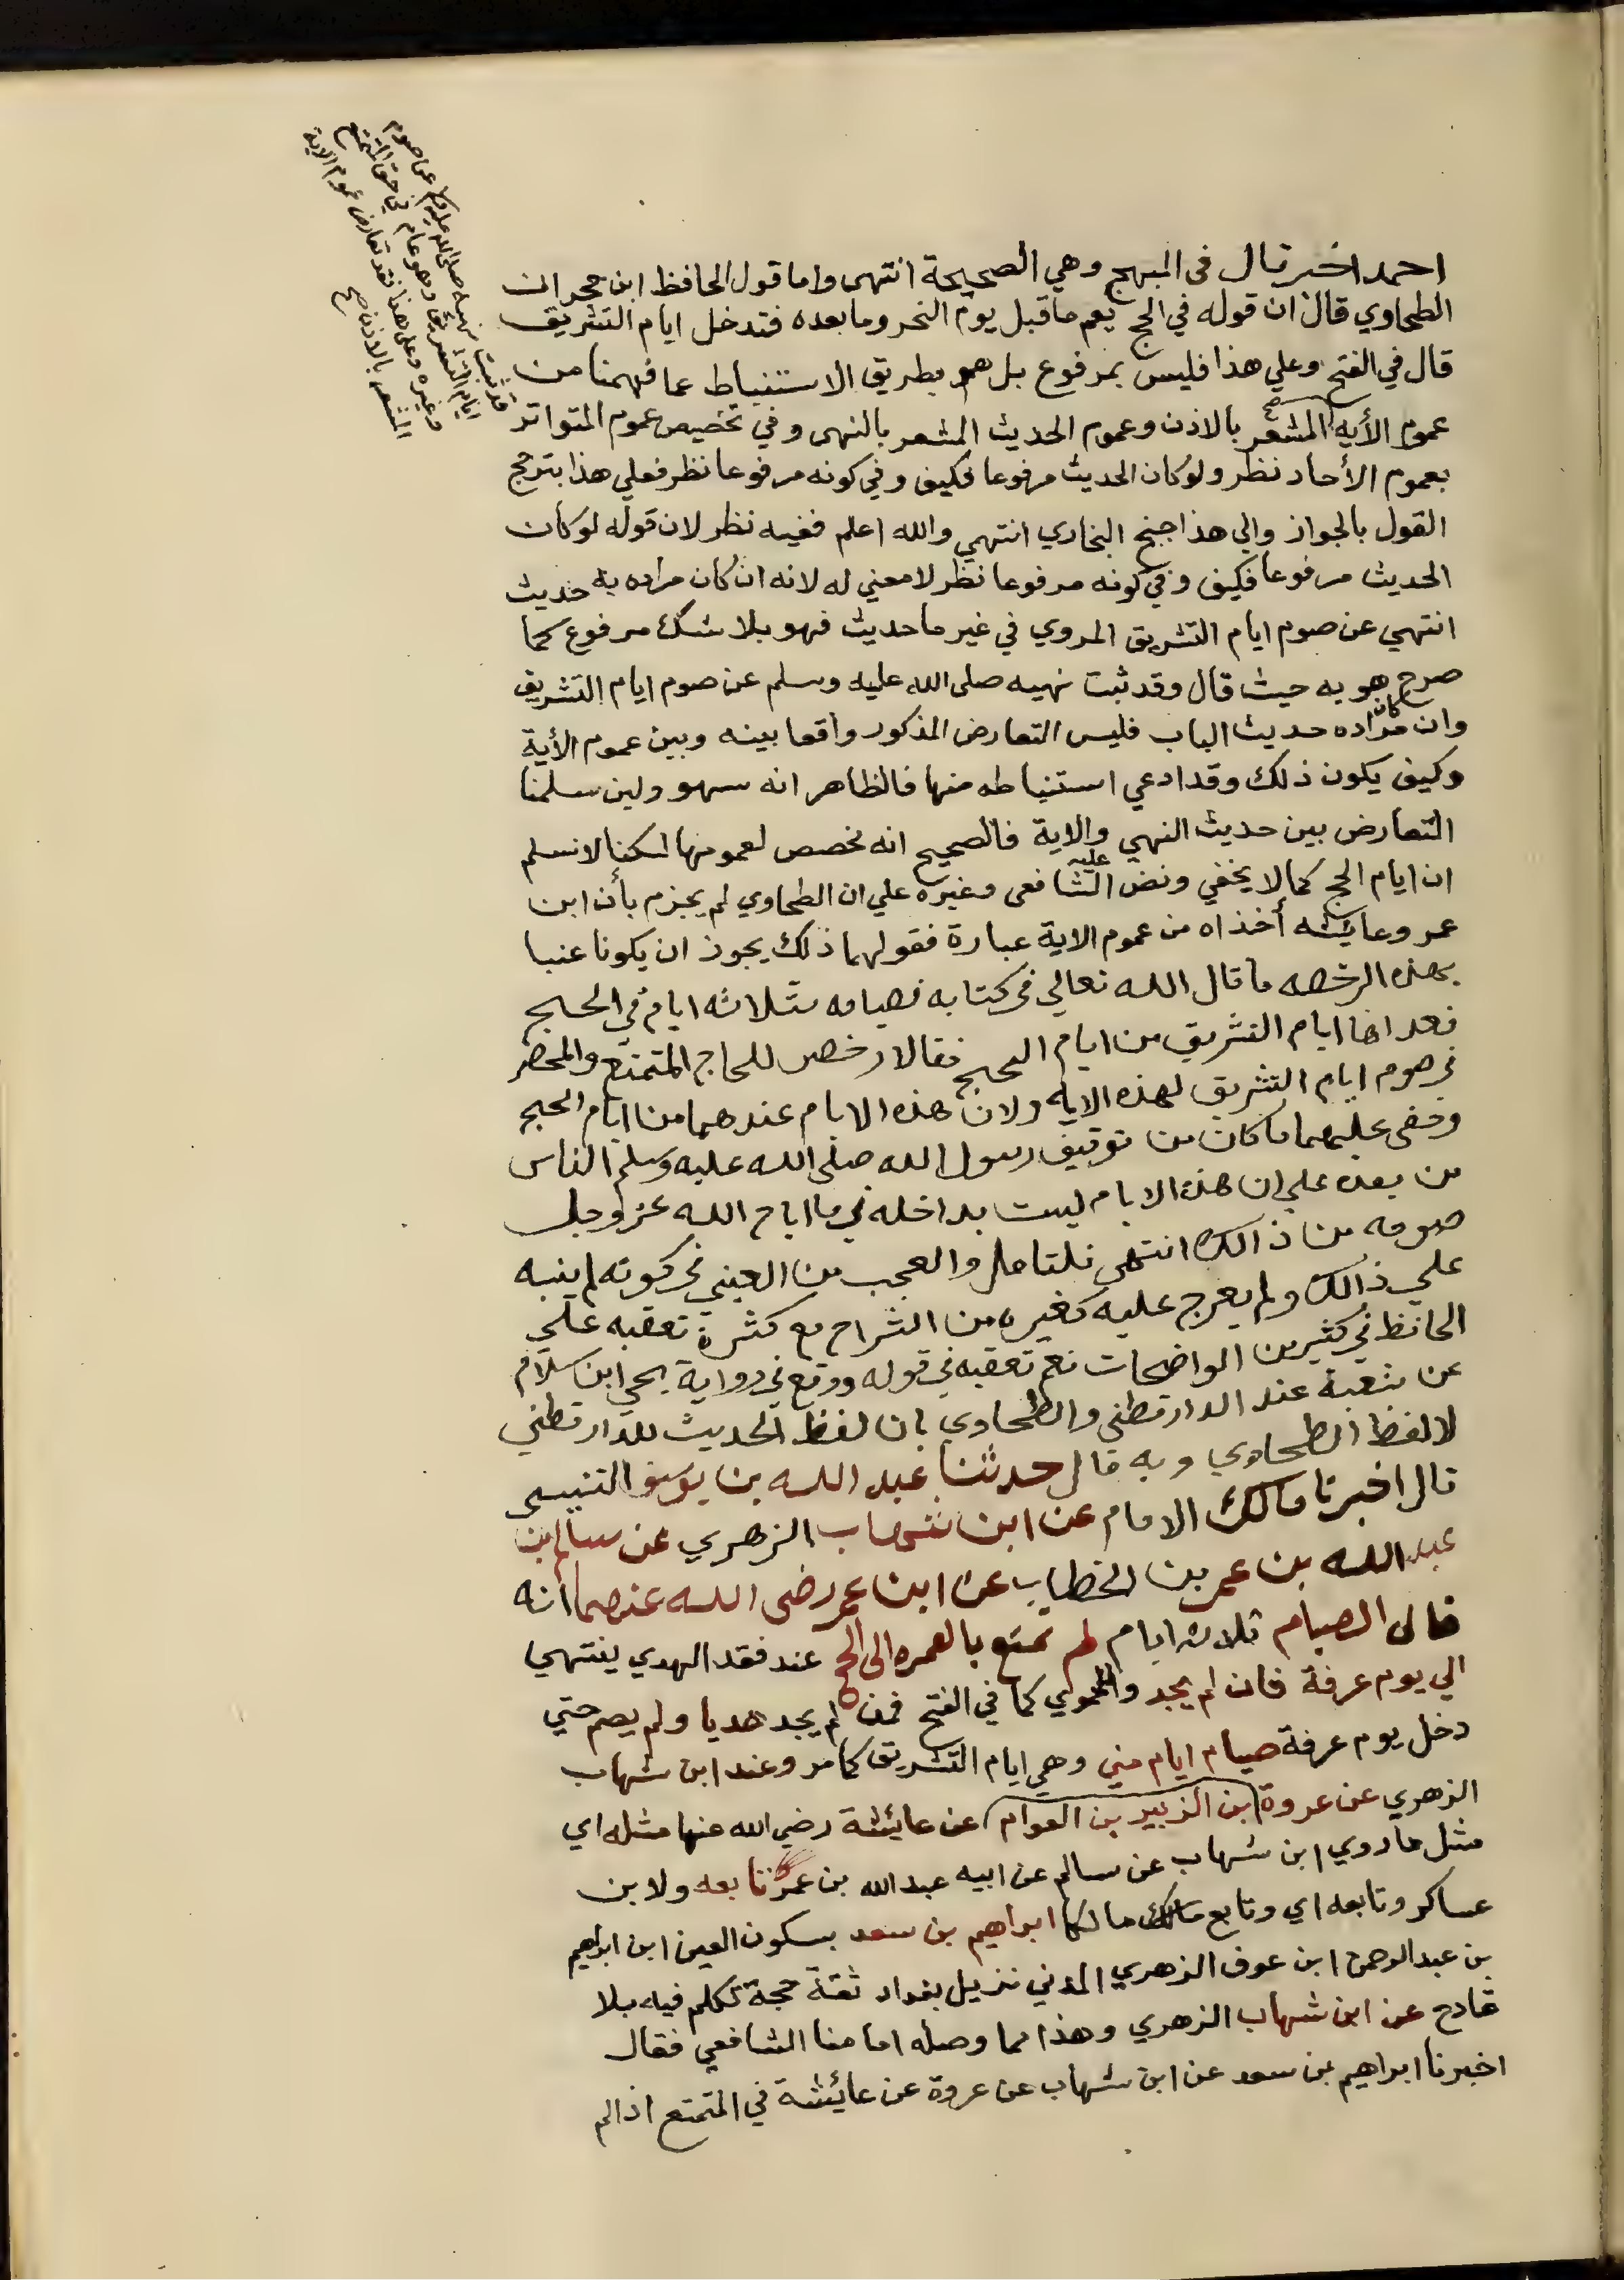 احمد اخر قال فى المبهج وهي الصحيحة انتهى واما قول الحافظ ابن حجر ان
الطحاوي قال ان قوله في الحج يعم ما قبل يوم النحر وما بعده فتدخل ايام التشريق
قال في الفتح وعلي هذا فليس بمرفوع بل هو بطريق الاستنباط عما فهمنا من
عموم الأيه المشعر بالاذن وعموم الحديث المشعر بالنهى وفي تخصيص عموم المتواتر
بعموم الأحاد نظر ولو كان الحديث مرفوعا فكيف وفي كونه مرفوعا نظر فعلي هذا يترجح
القول بالجواز والي هذا جنح البخاري انتهي والله اعلم ففيه نظر لان قوله لو كان
الحديث مرفوعا فكيف وفي كونه مرفوعا نظر لا معني له لانه ان كان مراده به حديث
انتهي عن صوم ايام التشريق المروي في غير ما حديث فهو بلا شك مرفوع كما
صرح هو به حيث قال وقد ثبت نهيه صلى الله عليه وسلم عن صوم ايام التشريق
وان كان مراده حديث الباب فليس التعارض المذكور واقعا بينه وبين عموم الأية
وكيف يكون ذلك وقد ادعي استنباطه منها فالظاهر انه سهو ولين سلمنا
التعارض بين حديث النهي والاية فالصحيح انه مخصص لعمومها لكنا لا نسلم
ان ايام الحج كما لا يخفي ونص عليه الشافعى وغيره علي ان الطحاوي لم يجزم بأن ابن
عمر وعايشه أخذاه من عموم الاية عبارة فقولهما ذلك يجوز ان يكونا عنيا
بهذه الرخصه ما قال الله تعالي في كتابه فصيامه ثلاثه ايام في الحج
فعداها ايام التشريق من ايام الحج فقالا رخص للحاج المتمتع والمحصر
في صوم ايام التشريق لهذه الايه ولان هذه الايام عندهما من ايام الحج
وخفى عليهما ما كان من توقيف رسول الله صلى الله عليه وسلم الناس
من بعده علي ان هذه الايام ليست بداخله في ما اباح الله عز وجل
صومه من ذالك انتهى فلتامل والعجب من العيني في كونه لم ينبه
علي ذالك ولم يعرج عليه كغيره من الشراح مع كثرة تعقبه علي
الحافظ في كثير من الواضحات نعم تعقبه في قوله ووقع في رواية يحي ابن سلام
عن شعبة عند الدارقطني والطحاوي بان لفظ الحديث للدارقطني
لا لفظ الطحاوي وبه قال حدثنا عبد الله بن يوسف التنيسي
قال اخبرنا مالك الامام عن ابن شهاب الزهري عن سالم ابن
عبد الله بن عمر بن الخطاب عن ابن عمر رضى الله عنهما انه
قال الصيام ثلاثه ايام لم تمتع بالعمره الى الحج عند فقد الهدي ينتهي
الي يوم عرفة فان لم يجد وللحموي كما في الفتح فمن لم يجد هديا ولم يصم حتي
دخل يوم عرفة صيام ايام مني وهي ايام التشريق كما مر وعند ابن شهاب
الزهري عن عروة ابن الزبير بن العوام عن عايئشة رضي الله عنها مثله اي
مثل ما روي ابن شهاب عن سالم عن ابيه عبد الله بن عمر تابعه ولابن
عساكر وتابعه اي وتابع مالكا ابراهيم بن سعد بسكون العين ابن ابراهيم
بن عبد الرحمن ابن عوف الزهري المدني نزيل بغداد ثقة حجة تكلم فيه بلا
قادح عن ابن شهاب الزهري وهذا مما وصله امامنا الشافعي فقال
اخبرنا ابراهيم بن سعد عن ابن شهاب عن عروة عن عائشة في المتمتع اذا لم
قد ثبت نهيه صلى الله عليه وسلم عن صوم
ايام التشريق وهو عام في حق المتمتع
وغيره وعلى هذا فقد تعارض عموم الاية
المشعر بالاذن صح